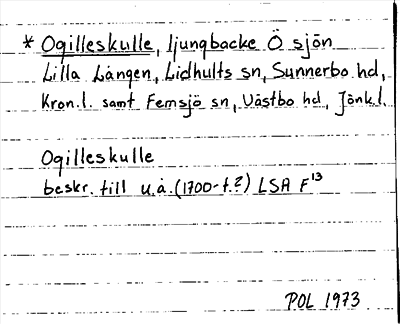 * Ogilleskulle, ljungbacke Ö sjön
Lilla Lången, Lidhults sn, Sunnerbo hd,
Kron.l. samt Femsjö sn, Västbo hd, Jönk.l.
Ogilleskulle
beskr. till u.å. (1700-t.?) LSA F¹³
POL 1973